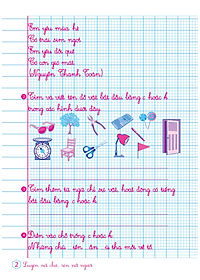 Em yêu mùa hè
Có trái sim ngọt
Em yêu đồi quê
Có cơn gió mát
(Nguyễn Thanh Toàn)
Tìm và viết tên đồ vật bắt đầu bằng c hoặc k
trong các hình dưới đây
Tìm thêm từ ngữ chỉ sự vật, hoạt động có tiếng
bắt đầu bằng c hoặc k
Điền vào chỗ trống c hoặc k
2 Luyện nói chữ, rèn nết người